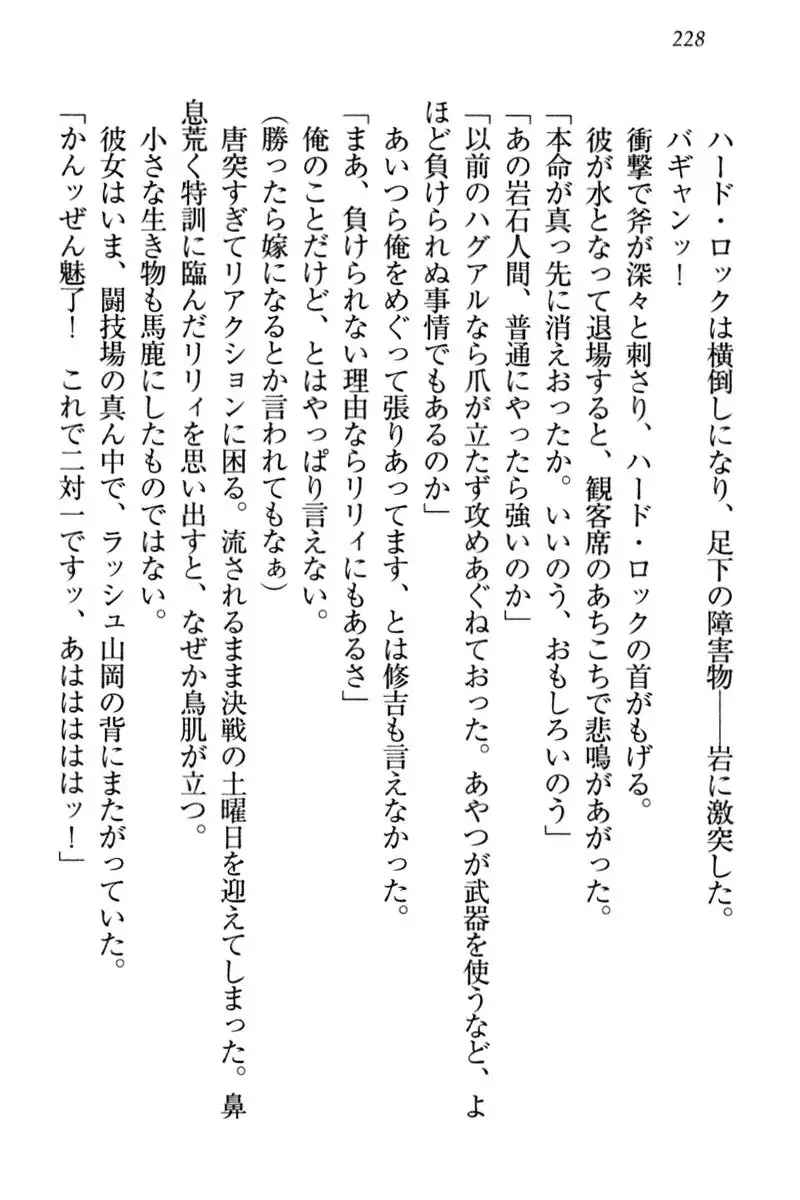 228
ハード・ロックは横倒しになり、足下の障害物――岩に激突した。
バギャンッ！
衝撃で斧が深々と刺さり、ハード・ロックの首がもげる。
彼が水となって退場すると、観客席のあちこちで悲鳴があがった。
「本命が真っ先に消えおったか。いいのう、おもしろいのう」
「あの岩石人間、普通にやったら強いのか」
「以前のハグアルなら爪が立たず攻めあぐねておった。あやつが武器を使うなど、よ
ほど負けられぬ事情でもあるのか」
あいつら俺をめぐって張りあってます、とは修吉も言えなかった。
「まあ、負けられない理由ならリリィにもあるさ」
俺のことだけど、とはやっぱり言えない。
（勝ったら嫁になるとか言われてもなぁ）
唐突すぎてリアクションに困る。流されるまま決戦の土曜日を迎えてしまった。鼻
息荒く特訓に臨んだリリィを思い出すと、なぜか鳥肌が立つ。
小さな生き物も馬鹿にしたものではない。
彼女はいま、闘技場の真ん中で、ラッシュ山岡の背にまたがっていた。
「かんッぜん魅了！　これで二対一ですッ、あはははははッ！」